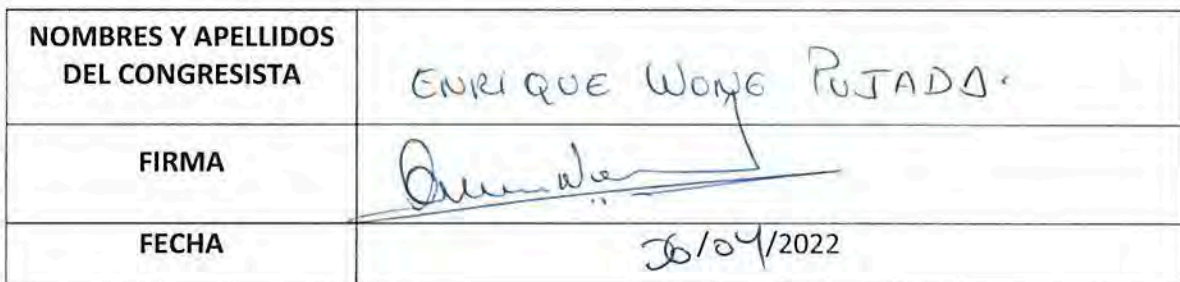 NOMBRES Y APELLIDOS
DEL CONGRESISTA
ENRIQUE WONG PUJADA.
FIRMA
FECHA
/04/2022